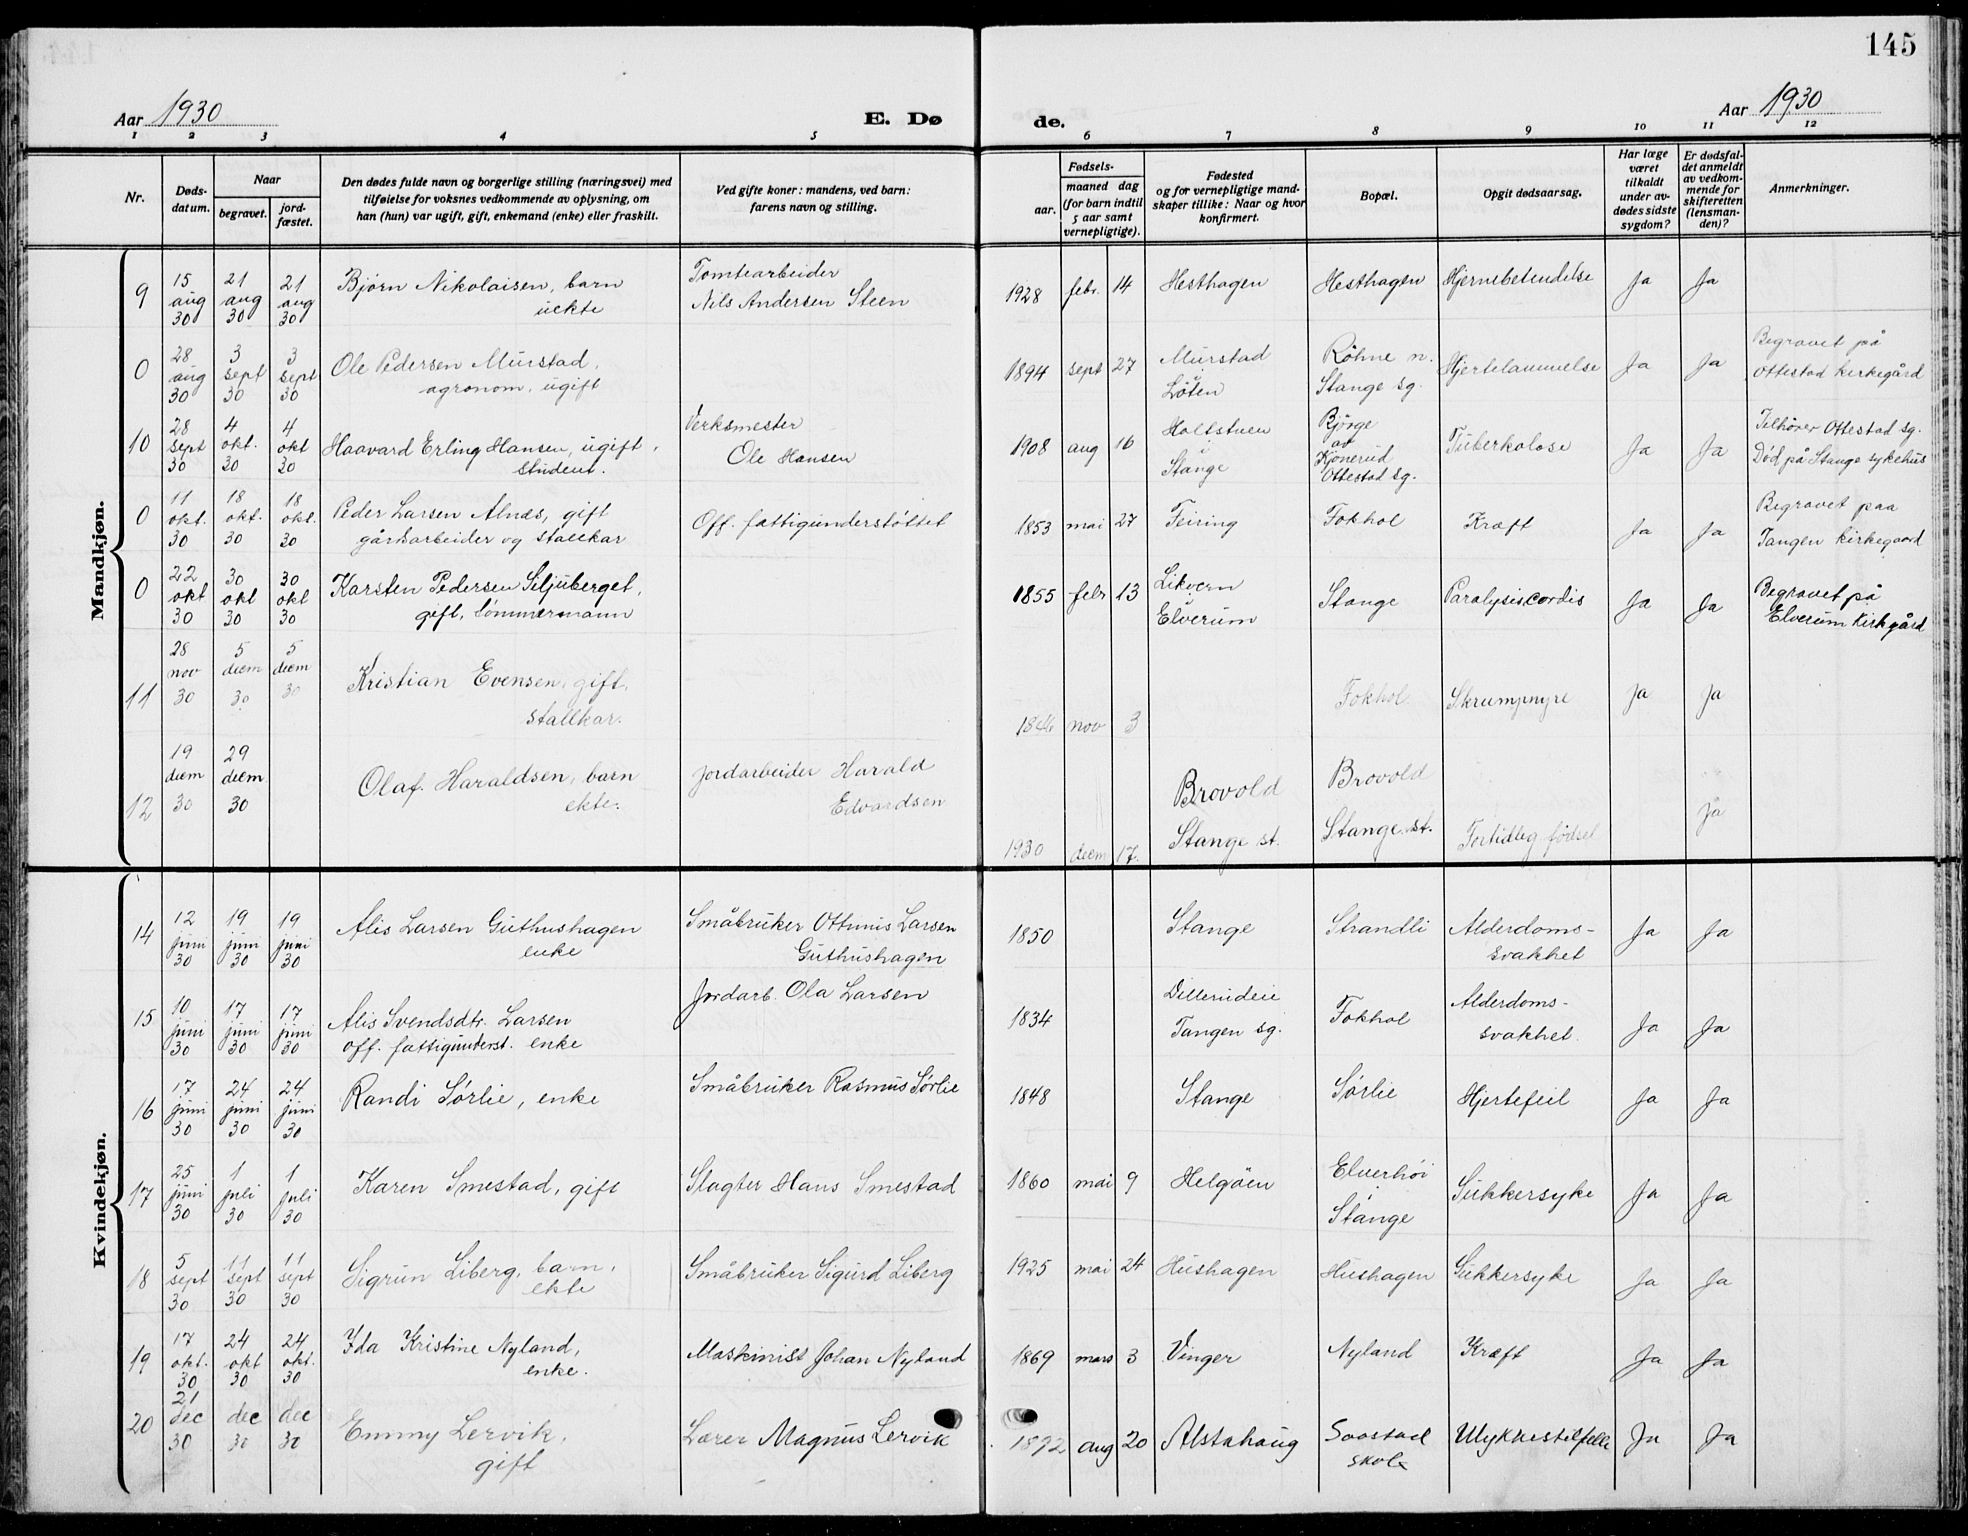 145
Aar 1930 E. Dø de. Aar 1930
1 2 3 4 5 6 7 8 9 10 11 12
Nr. Døds-datum. Naar begravet. jord-fæstet. Den dødes fulde navn og borgerlige stilling (næringsvei) med tilføielse for voksnes vedkommende av oplysning, om han (hun) var ugift, gift, enkemand (enke) eller fraskilt. Ved gifte koner: mandens, ved barn: farens navn og stilling. Fødsels- aar. maaned dag (for barn indtil 5 aar samt vernepligtige). Fødested og for vernepligtige mand-skaper tillike: Naar og hvor konfirmert. Bopæl. Opgit dødsaarsag. Har læge været tilkaldt under av-dødes sidste sygdom? Er dødsfal-det anmeldt av vedkom-mende for skifteretten (lensman-den)? Anmerkninger.
Mandkjøn.
9 15 aug 30 21 aug 30 21 aug 30 Bjørn Nikolaisen, barn uekte Tomtearbeider Nils Andersen Steen 1928 febr. 14 Hesthagen Hesthagen Hjernebetendelse Ja Ja
0 28 aug 30 3 sept 30 3 sept 30 Ole Pedersen Murstad, agronom, ugift 1894 sept 27 Murstad i Løten Røhne n. Stange sg. Hjertelammelse Ja Ja Begravet på Ottestad kirkegård
10 28 sept 30 4 okt. 30 4 okt 30 Haavard Erling Hansen, ugift, student. Verksmester Ole Hansen 1908 aug 16 Holtstuen i Stange Bjørge av Kjonerud Ottestad sg. Tuberkolose Ja Ja Tilhører Ottestad sg. Død på Stange sykehus
0 11 okt. 30 18 okt. 30 18 okt. 30 Peder Larsen Alnæs, gift gårdsarbeider og stallkar Off. fattigunderstøttet 1853 mai 27 Feiring Fokhol Kræft Ja Ja Begravet paa Tangen kirkegaard
0 22 okt 30 30 okt 30 30 okt 30 Karsten Pedersen Siljuberget, gift, tømmermann 1855 febr 13 Likvern Elverum Stange Paralysis cordis Ja Ja Begravet på Elverum kirkgård
11 28 nov 30 5 decem 30 5 decem 30 Kristian Evensen, gift, stallkar. nov 3 Fokhol Skrumpnyre Ja Ja
12 19 decem 30 29 decem 30 Olaf Haraldsen, barn ekte. Jordarbeider Harald Edvardsen 1930 decem 17. Brovold Stange st. Brovold Stange st. Fortidleg fødsel Ja
Kvindekjøn.
14 12 juni 30 19 juni 30 19 juni 30 Alis Larsen Guthushagen enke Småbruker Ottinus Larsen Guthushagen 1850 Stange Strandli Alderdoms-svakhet Ja Ja
15 10 juni 30 17 juni 30 17 juni 30 Alis Svendsdtr. Larsen off. fattigunderst. enke Jordarb. Ola Larsen 1834 Dillerudeie Tangen sg. Fokhol Alderdoms-svakhet. Ja Ja
16 17 juni 30 24 juni 30 24 juni 30 Randi Sørlie, enke Småbruker Rasmus Sørlie 1848 Stange Sørlie Hjertefeil Ja Ja
17 25 juni 30 1 juli 30 1 juli 30 Karen Smestad, gift Slagter Hans Smestad 1860 mai 9 Helgøen Elverhöi i Stange Sukkersyke Ja Ja
18 5 sept 30 11 sept 30 11 sept 30 Sigrun Liberg, barn, ekte Småbruker Sigurd Liberg 1925 mai 24 Hushagen Hushagen Sukkersyke Ja Ja
19 17 okt. 30 24 okt 30 24 okt. 30 Ida Kristine Nyland, enke. Maskinist Johan Nyland 1869 mars 3 Vinger Nyland Kræft Ja Ja
20 21 dec 30 dec 30 dec 30 Emmy Lervik, gift Lærer Magnus Lervik 1892 aug 20 Alstahaug Saastad skole Ulykkestilfelle Ja Ja